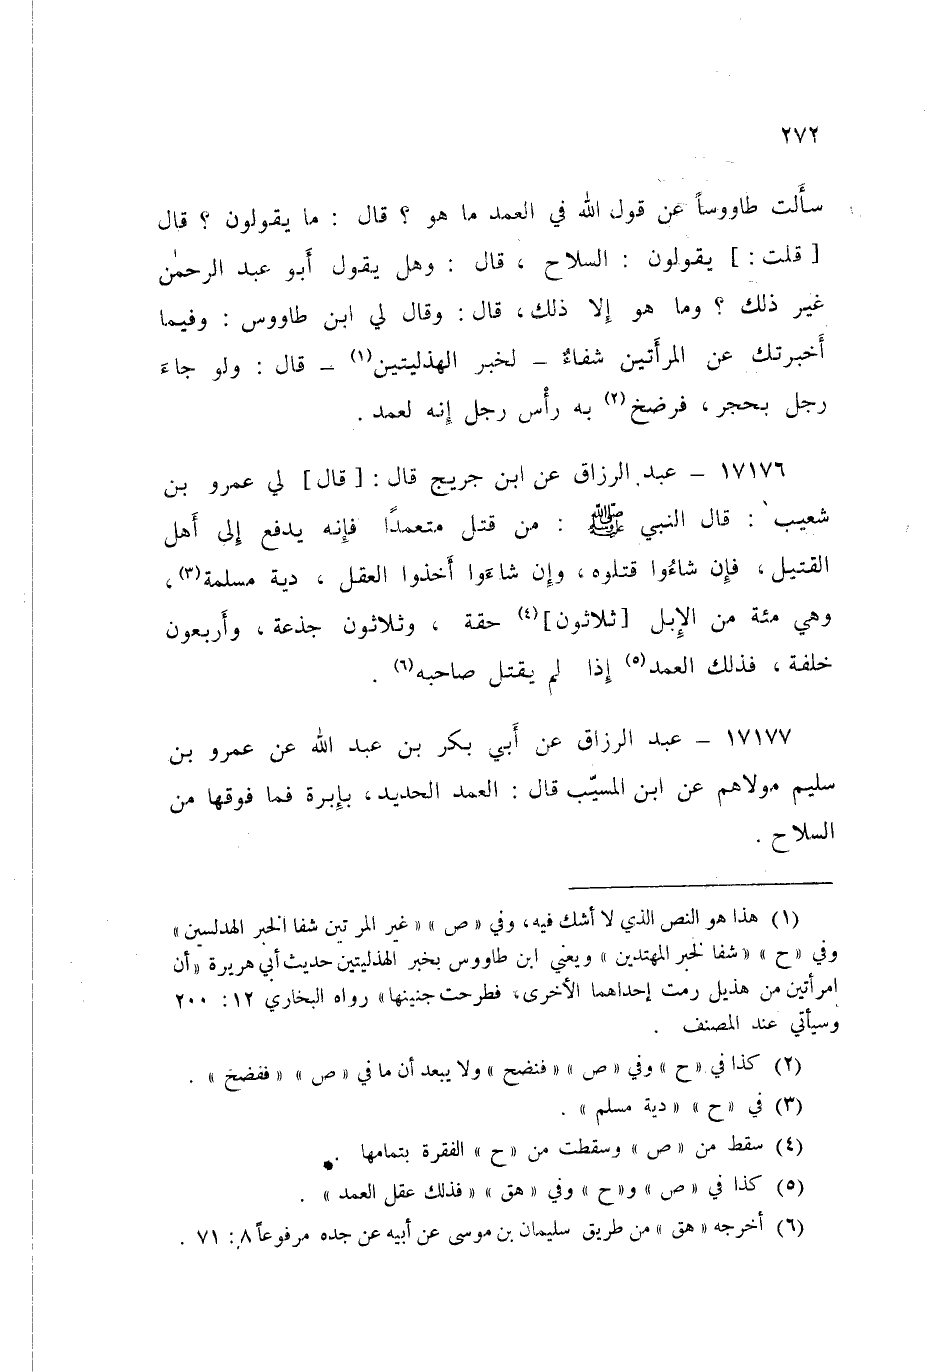 ٢٧٢
سأَلت طاووساً عن قول الله في العمد ما هو ؟ قال : ما يقولون ؟ قال
[ قلت : ] يقولون : السلاح ، قال : وهل يقول أَبو عبد الرحمٰن
غير ذلك ؟ وما هو إِلا ذلك، قال : وقال لي ابن طاووس : وفيما
أَخبرتك عن المرأَتين شفاءٌ – لخبر الهذليتين(١) – قال : ولو جاءَ
رجل بحجر ، فرضخ(٢) به رأْس رجل إِنه لعمد .
١٧١٧٦ – عبد الرزاق عن ابن جريج قال : [ قال ] لي عمرو بن
شعيب : قال النبي ﷺ : من قتل متعمدًا فإِنه يدفع إِلى أَهل
القتيل ، فإِن شاءُوا قتلوه ، وإِن شاءَوا أَخذوا العقل ، دية مسلمة(٣)،
وهي مئة من الإِبل [ثلاثون](٤) حقة ، وثلاثون جذعة ، وأَربعون
خلفة ، فذلك العمد(٥) إِذا لم يقتل صاحبه(٦) .
١٧١٧٧ – عبد الرزاق عن أَبي بكر بن عبد الله عن عمرو بن
سليم مولاهم عن ابن المسيّب قال : العمد الحديد ، بإِبرة فما فوقها من
السلاح .
(١) هذا هو النص الذي لا أشك فيه، وفي « ص » « غير المر تين شفا الخبر الهدلسين »
وفي « ح » « شفا لخبر المهتدين » ويعني ابن طاووس بخبر الهذليتين حديث أبي هريرة « أن
امرأتين من هذيل رمت إحداهما الأخرى، فطرحت جنينها » رواه البخاري ١٢ : ٢٠٠
وسيأتي عند المصنف .
(٢) كذا في « ح » وفي « ص » « فنضح » ولا يبعد أن ما في « ص » « ففضخ » .
(٣) في « ح » « دية مسلم » .
(٤) سقط من « ص » وسقطت من « ح » الفقرة بتمامها .
(٥) كذا في « ص » و« ح » وفي « هق » « فذلك عقل العمد » .
(٦) أخرجه « هق » من طريق سليمان بن موسى عن أبيه عن جده مرفوعاً ٨ : ٧١ .